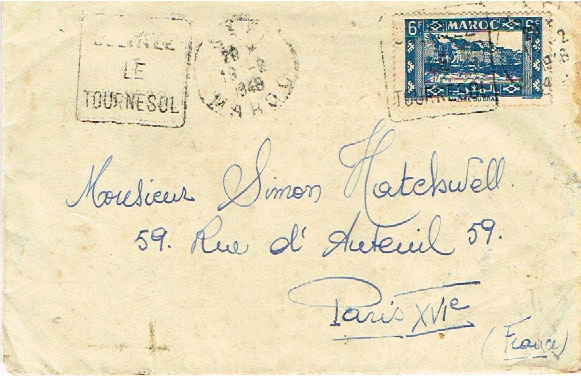 LE
TOURNESOL
1948
MAROC
6F MAROC
TOURNESOL
Monsieur Simon Hatchwell.
59. Rue d'Auteuil 59.
Paris XVIe
(France)